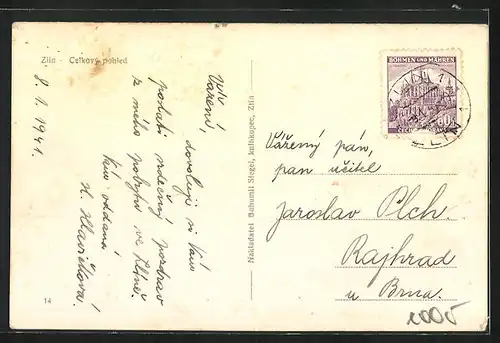 Zlín - Celkový pohled
8. 1. 1941.
Vážení,
dovoluji si Vám
poslati srdečný pozdrav
z mého pobytu ve Zlíně.
Vám oddaná
H. Hlavičková.
14
Nakladatel Bohumil Siegel, knihkupec, Zlín
BÖHMEN UND MÄHREN
60
Vážený pán,
pan učitel
Jaroslav Plch.
Rajhrad
u Brna.